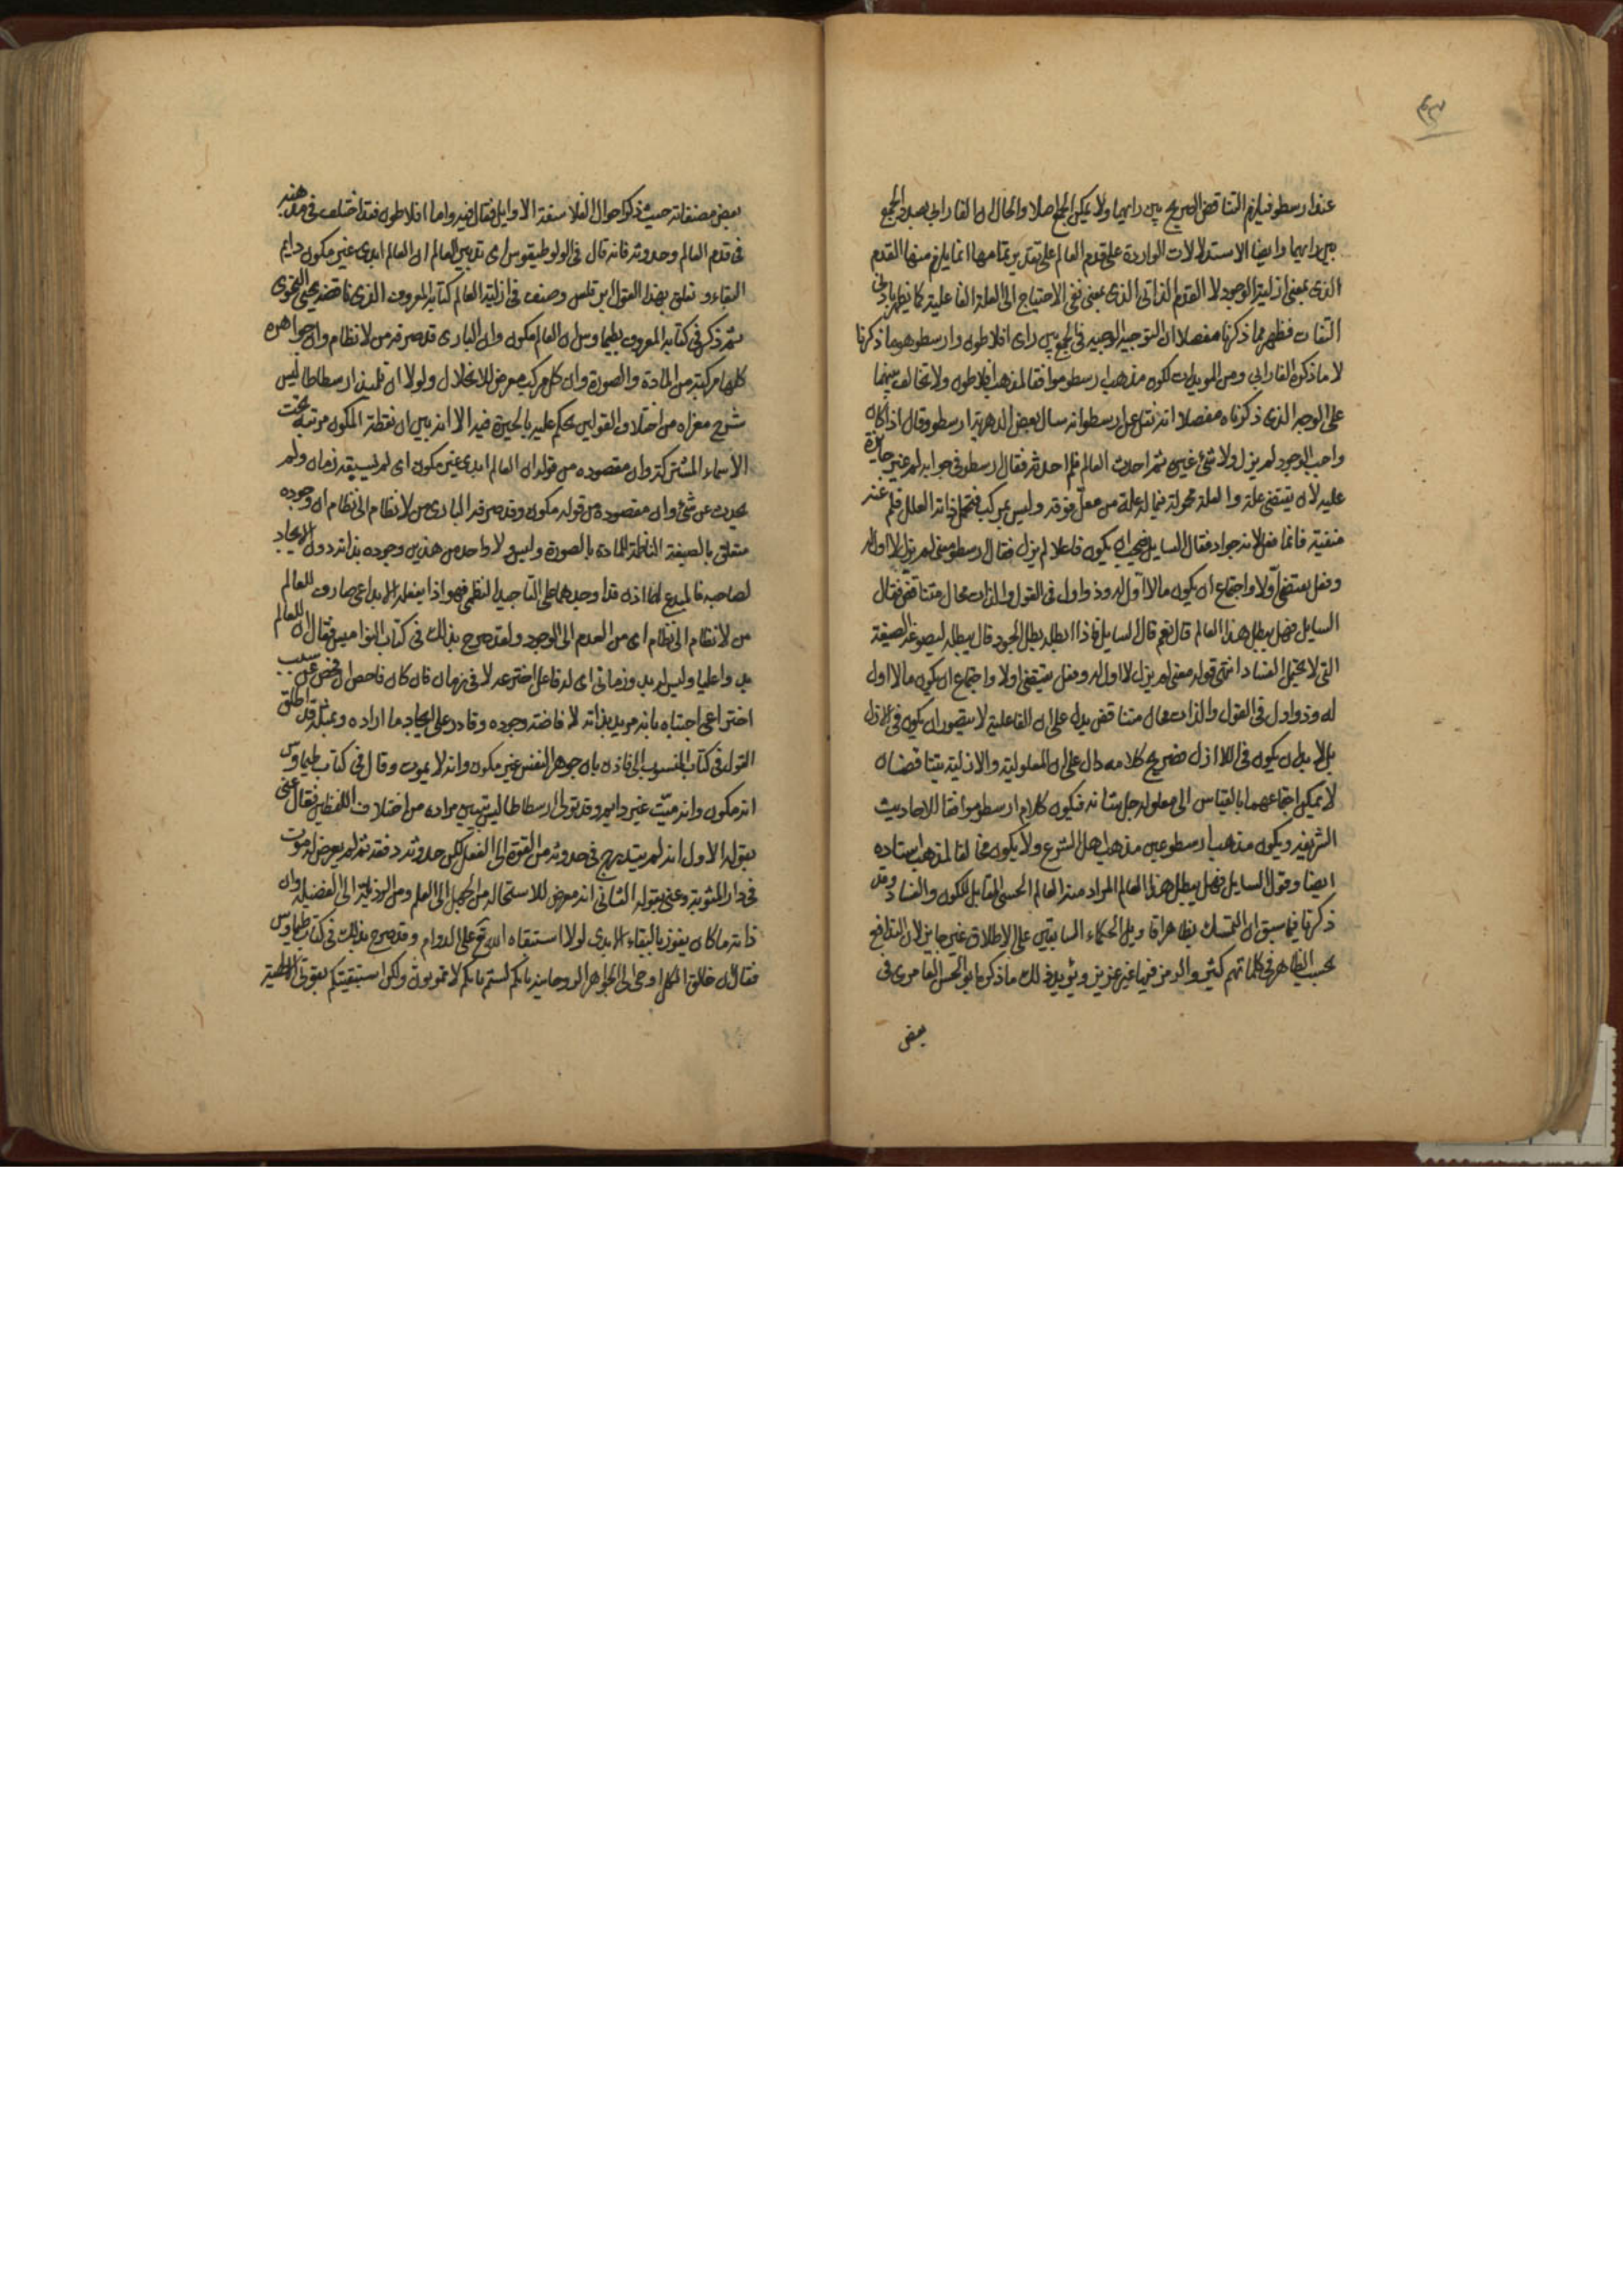 ٤٣
عند ارسطو فيلزم التناقض الصريح بين رايهما ولا يمكن الجمع اصلا والحال ان الفارابي بصدد الجمع
بين رايهما وايضا الاستدلالات الواردة على قدم العالم على تقدير تمامها انما يلزم منها القدم
الذى بمعنى ازلية الوجود لا القدم الذاتى الذى بمعنى نفى الاحتياج الى العلة الفاعلية كما يظهر بادنى
التفات فظهر مما ذكرنا مفصلا ان التوجيه الوجيه فى الجمع بين راى افلاطون وارسطو هو ما ذكرنا
لا ما ذكره الفارابى ومن المويدات لكون مذهب ارسطو موافقا لمذهب افلاطون ولا تخالف بينهما
على الوجه الذى ذكرناه مفصلا انه نقل عن ارسطو انه سال بعض الدهرية ارسطو وقال اذا كان
واجب الوجود لم يزل ولا شئ غيره ثم احدث العالم فلم احدثه فقال ارسطو فى جوابه لم غير جايزة
عليه لان يقتضى علة والعلة محمولة فيما له علة من معلّ فوقه وليس بمركب فتحمل ذاته العلل فلم عنه
منفية فانما فعل لانه جواد فقال السايل فيجب ان يكون فاعلا لم يزل فقال ارسطو معنى لم يزل لا اول له
وفعل يقتضى اولا واجتماع ان يكون ما لا اول له وذو اول فى القول والذات محال متناقض فقال
السايل فهل يبطل هذا العالم قال نعم قال السايل فاذا ابطله بطل الجود قال يبطله ليصوغه الصيغة
التى لا يحتمل الفساد انتهى قوله معنى لم يزل لا اول له وفعل يقتضى اولا واجتماع ان يكون ما لا اول
له وذو اول فى القول والذات محال متناقض يدل على ان الفاعلية لا يتصور ان يكون فى الازل
بل لا بد ان يكون فى اللاازل صريح كلامه دال على ان المعلولية والازلية يتناقضان
لا يمكن اجتماعهما بالقياس الى معلوله جل شانه فيكون كلام ارسطو موافقا للاحاديث
الشريفه ويكون مذهب ارسطو عين مذهب اهل الشرع ولا يكون مخالفا لمذهب استاده
ايضا وقول السايل فهل يبطل هذا العالم المراد منه العالم الحسى القابل للكون والفساد وقد
ذكرنا فيما سبق ان التمسك بظاهر اقاويل الحكماء السابقين على الاطلاق غير جايز لان التدافع
بحسب الظاهر فى كلماتهم كثير والرمز فيها غير عزيز ويؤيد ذلك ما ذكره ابو الحسن العامرى فى
بعض
بعض مصنفاته حيث ذكر احوال الفلاسفة الاوايل فقال فيه واما افلاطون فقد اختلف فى مذهبه
فى قدم العالم وحدوثه فانه قال فى الولوطيقوس اى تدبير العالم ان العالم ابدى غير مكون دايم
البقاء وتعلق بهذا القول برقلس وصنف فى ازلية العالم كتابه المعروف الذى ناقضه يحيى النحوى
ثم ذكر فى كتابه المعروف بطيماوس ان العالم مكون وان البارى قد صرفه من لا نظام وان جواهره
كلها مركبة من المادة والصورة وان كل مركب معرض للانحلال ولولا ان تلميذه ارسطاطاليس
شرح مغزاه من اختلاف القولين يحكم عليه بالحيرة فيه الا انه بين ان لفظة المكون مرتبة تحت
الاسماء المشتركة وان مقصوده من قوله ان العالم ابدى غير مكون اى لم يسبقه زمان ولم
يحدث عن شئ وان مقصوده من قوله مكون وقد صرفه البارى من لا نظام الى نظام ان وجوده
متعلق بالصيغة الناظمة للمادة بالصورة وليس ولا واحد من هذين وجوده بذاته دون الايجاد
لصاحبه فالمبدع لها اذن قد اوجدهما على التاحيد النظمى فهو اذا بفعله الابداعى صارف للعالم
من لا نظام الى نظام اى من العدم الى الوجود ولقد صرح بذلك فى كتاب النواميس فقال ان للعالم
بدوا عليا وليس له بدو زمانى اى له فاعل اخترعه لا فى زمان فان كان فاحص ان فحص عن سبب
اختراعى اجتباه بانه مريد بذاته لافاضته وجوده وقادر على ايجاد ما اراده وبمثله قد اطلق
القول فى كتابه المنسوب الى فاذن بان جوهر النفس غير مكون وانه لا يموت وقال فى كتاب طيماوس
انه مكون وانه ميّت غير دايم وقد تولى ارسطاطاليس تبيين مراده من اختلاف اللفظين فقال عنى
بقوله الاول انه لم يتدرج فى حدوثه من القوة الى الفعل لكن حدوثه دفعة ثم لم يعرض له موت
فى دار المثوبة وعنى بقوله الثانى انه معرض للاستحالة من الجهل الى العلم ومن الرذيلة الى الفضيلة وان
ذاته ما كان يفوز بالبقاء الابدى لولا استبقاه الله تع على الدوام وقد صرح بذلك فى كتاب طيماوس
فقال ان خالق الكل اوحى الى الجواهر الروحانية بانكم لستم بانكم لا تموتون ولكن استبقيتكم بقوتى الالهية